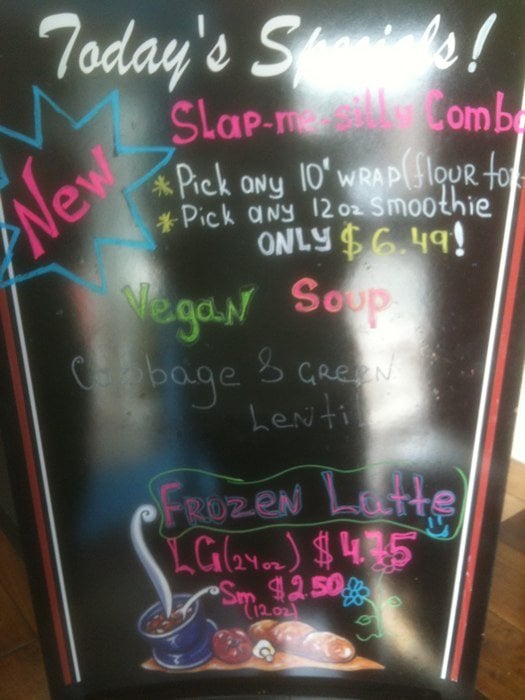 Today's Specials!
Slap-me-silly Combo
New
* Pick any 10" wrap (flour tor-
* Pick any 12oz smoothie
only $6.49!
Vegan Soup
Cabbage & Green
Lentil
Frozen Latte
LG (24oz) $4.75
Sm $2.50
(12oz)